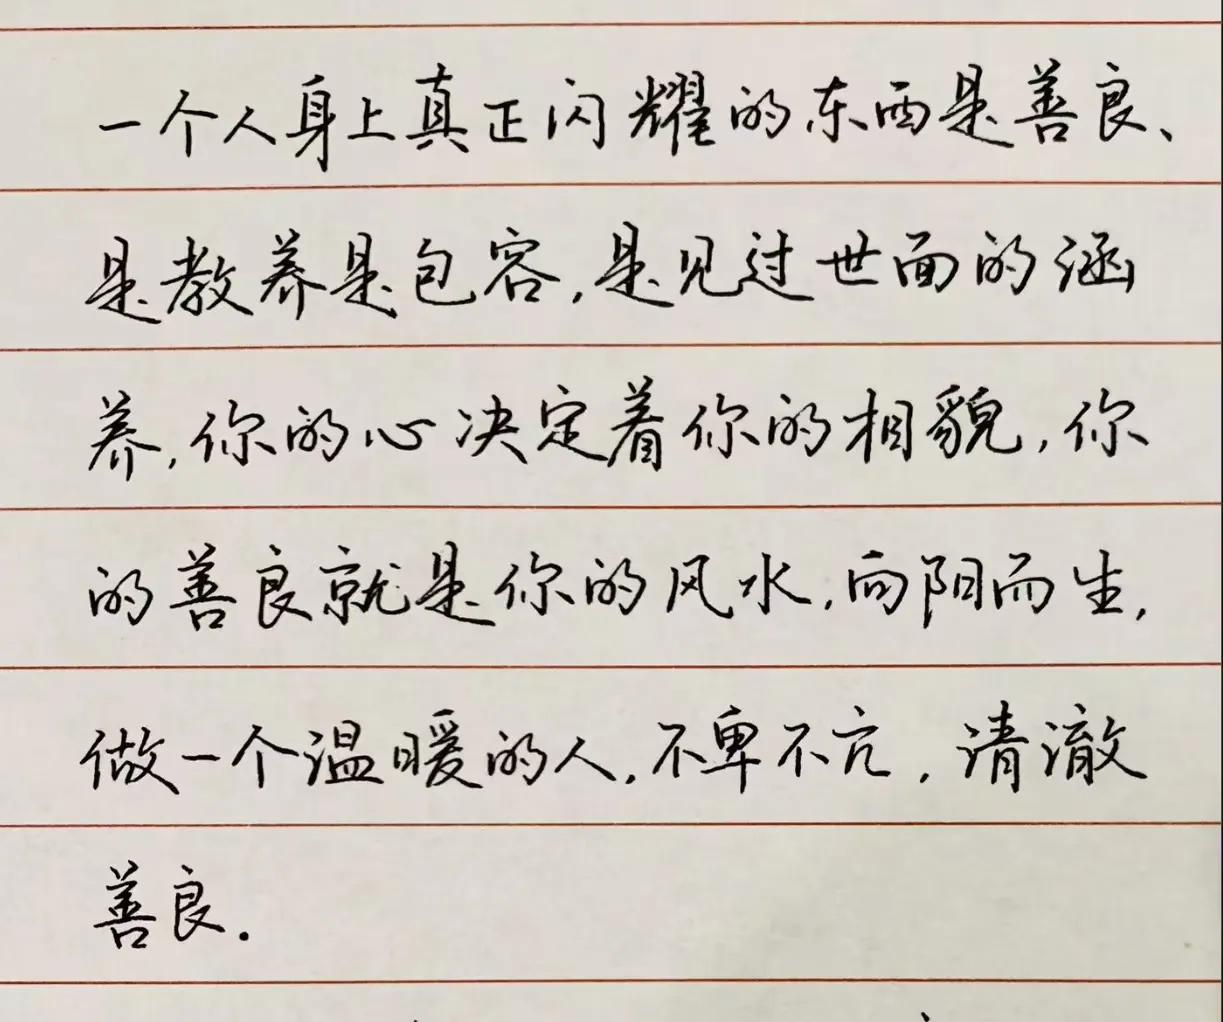 一个人身上真正闪耀的东西是善良、
是教养是包容,是见过世面的涵
养,你的心决定着你的相貌,你
的善良就是你的风水,向阳而生,
做一个温暖的人,不卑不亢,清澈
善良.